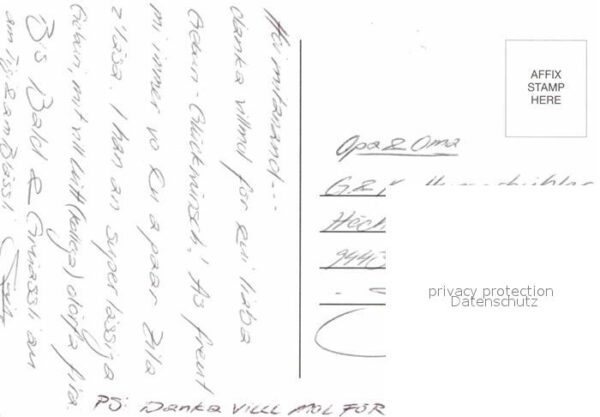 Hoi mitanand...
danka villmol för eui liaba
Gebur.-Glückwünsch! As freut
mi immer vo Eu a paar Zila
z'läsa. I han an super lässiga
Geburi, mit vill Lütt (Kollega) dörfa fira.
Bis Bald & Grüassli an
PS: Danka VILLL MOL FÖR
AFFIX
STAMP
HERE
Opa & Oma
G. & 
9440
privacy protection
Datenschutz